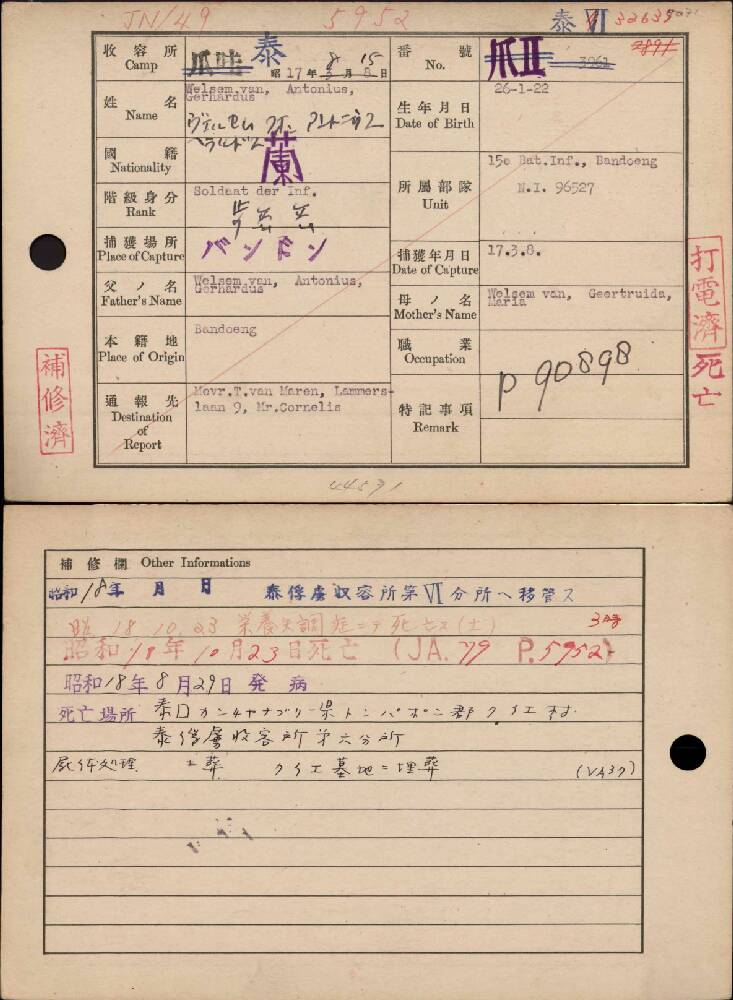 JN/49 5952 泰 VI 32635
收容所 Camp 爪哇 泰 昭17年8月15日
番號 No. 爪II 3961 2891
姓名 Name Welsem.van, Antonius, Gerhardus
ヴェルセム フォン アントニウス
ヘラルドス
生年月日 Date of Birth 26-1-22
國籍 Nationality 蘭
階級身分 Rank Soldaat der Inf.
所屬部隊 Unit 15e Bat.Inf., Bandoeng
N.I. 96527
捕獲場所 Place of Capture バンドン
捕獲年月日 Date of Capture 17.3.8.
父ノ名 Father's Name Welsem.van, Antonius, Gerhardus
母ノ名 Mother's Name Welsem van, Geertruida, Maria
本籍地 Place of Origin Bandoeng
職業 Occupation
通報先 Destination of Report Mevr.T.van Maren, Lammers-
laan 9, Mr.Cornelis
特記事項 Remark P 90898
補修濟
打電濟 死亡
44531
補修欄 Other Informations
昭和18年 月 日 泰俘虜収容所第VI分所へ移管ス
昭和18年10月23日死亡 (JA.79 P.5952)
昭和18年8月29日発病
死亡場所 泰国カンチャナブリー県トンパポン郡クイエ村
泰俘虜収容所第六分所
屍体処理 土葬 クイエ墓地ニ埋葬 (VA37)